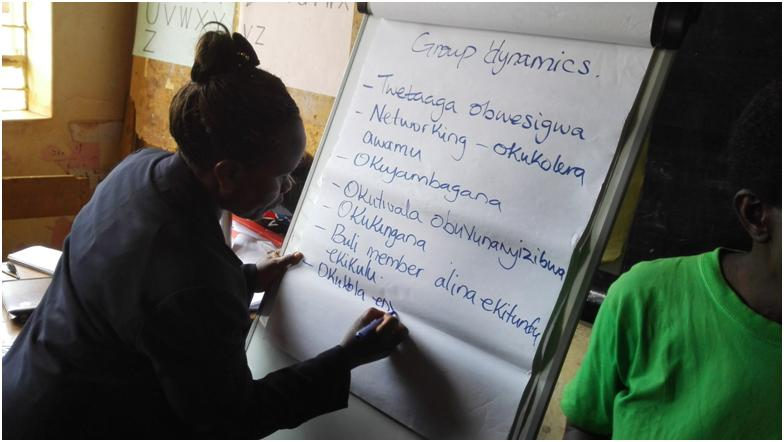 U V W X Y
Z
Y Z
Group dynamics.
- Twetaaga obwesigwa
- Networking - okukolera
awamu
- Okuyambagana
- Okutwala obuvunanyizibwa
- Okukkingana
- Buli member alina ekitundu
ekikulu.
- Okukola